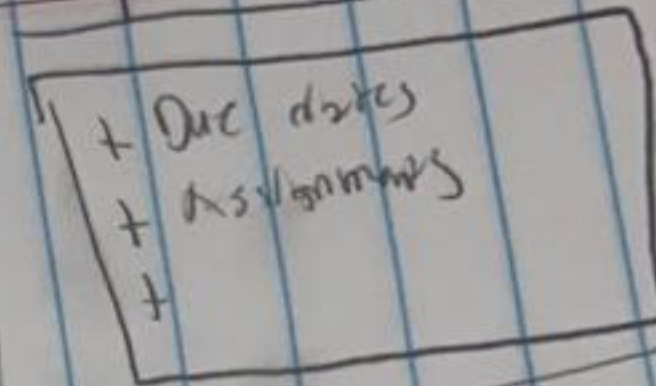 + Due dates
+ Assignments
+